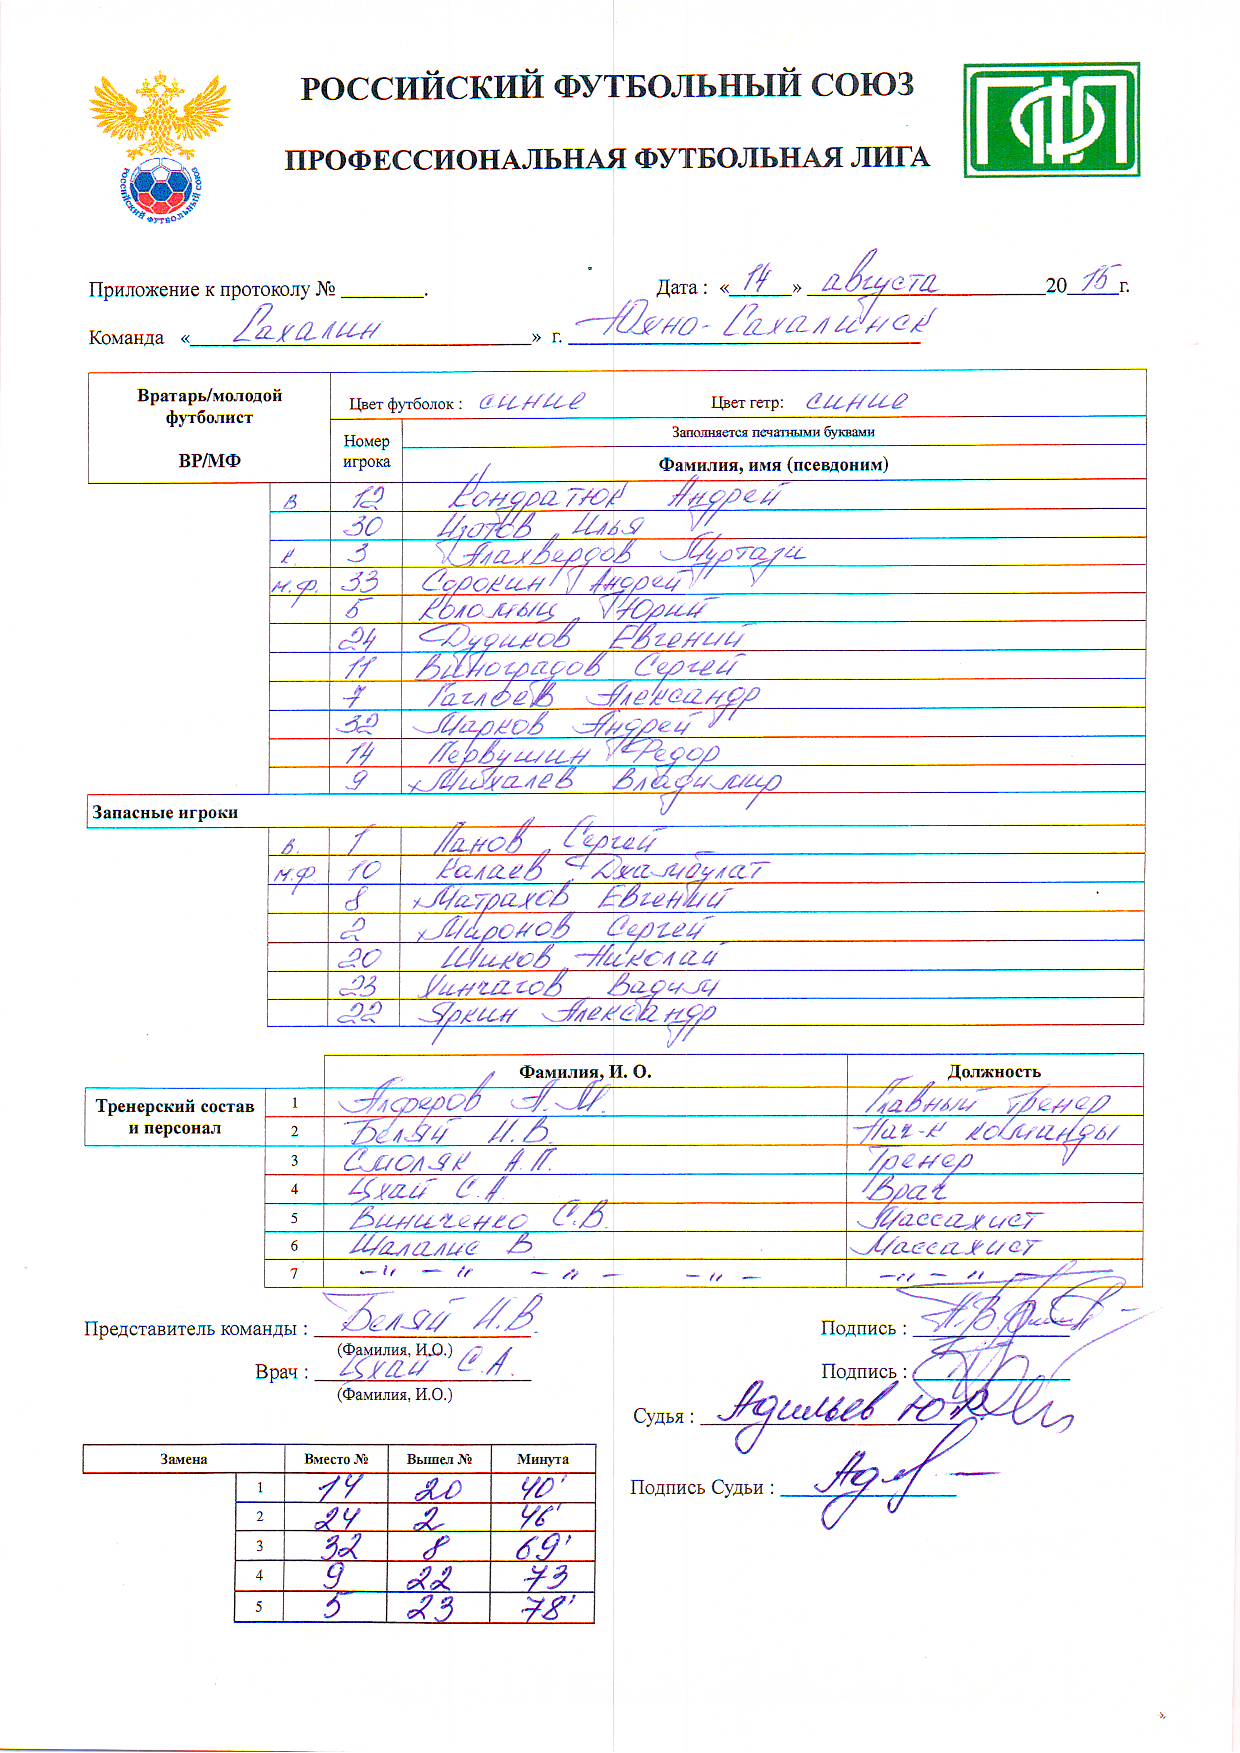 РОССИЙСКИЙ ФУТБОЛЬНЫЙ СОЮЗ
ПРОФЕССИОНАЛЬНАЯ ФУТБОЛЬНАЯ ЛИГА
ПФЛ
РОССИЙСКИЙ ФУТБОЛЬНЫЙ СОЮЗ
Приложение к протоколу № ________. Дата : «14» августа 2015г.
Команда «Сахалин» г. Южно-Сахалинск
Вратарь/молодой футболист ВР/МФ
Цвет футболок : синие Цвет гетр: синие
Номер игрока
Заполняется печатными буквами
Фамилия, имя (псевдоним)
в 12 Кондратюк Андрей
30 Изотов Илья
к. 3 Алахвердов Муртази
м.ф. 33 Сорокин Андрей
5 Коломыц Юрий
24 Дудиков Евгений
11 Виноградов Сергей
7 Гаглоев Александр
32 Марков Андрей
14 Первушин Федор
9 Михалев Владимир
Запасные игроки
в. 1 Панов Сергей
м.ф 10 Калаев Джамбулат
8 Матрахов Евгений
2 Миронов Сергей
20 Шиков Николай
23 Хинчагов Вадим
22 Яркин Александр
Фамилия, И. О. Должность
Тренерский состав и персонал
1 Алферов А.М. Главный тренер
2 Беляй Н.В. Нач-к команды
3 Смоляк А.П. Тренер
4 Цхай С.А. Врач
5 Виниченко С.В. Массажист
6 Шалалис В. Массажист
7 –"– –"– –"– –"– –"–
Представитель команды : Беляй Н.В. Подпись :
(Фамилия, И.О.)
Врач : Цхай С.А. Подпись :
(Фамилия, И.О.)
Судья : Адильев Ю.К.
Замена Вместо № Вышел № Минута
1 14 20 40'
Подпись Судьи :
2 24 2 46'
3 32 8 69'
4 9 22 73
5 5 23 78'